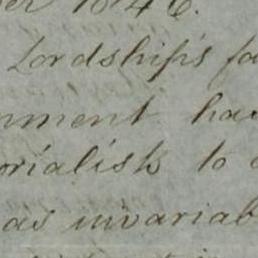 1846.
Lordship's fa
nment hav
orialists to
as invariab